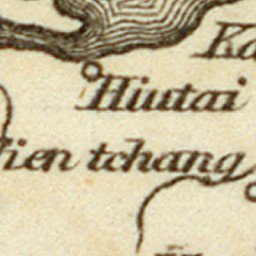 Ka
Hiutai
ien tchang